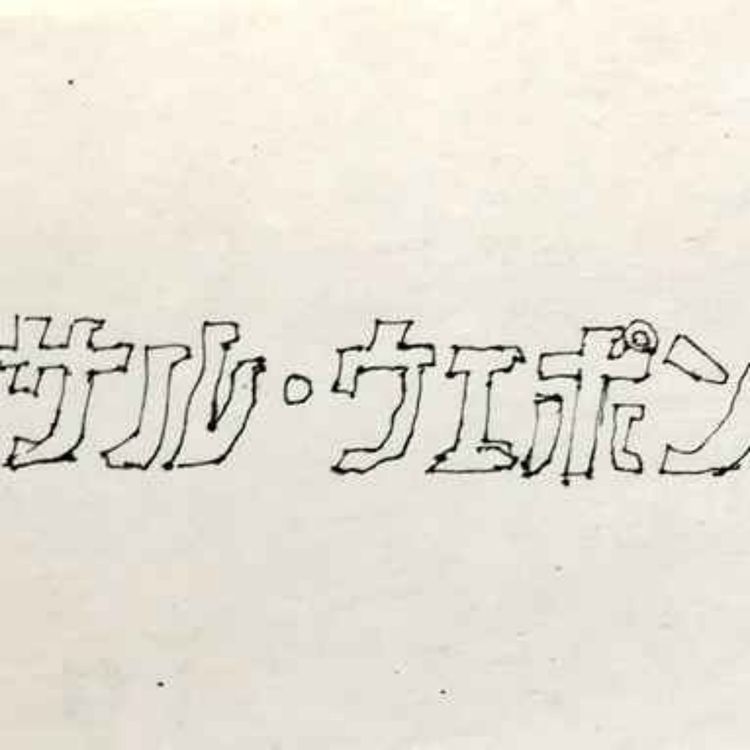 サル・ウェポン